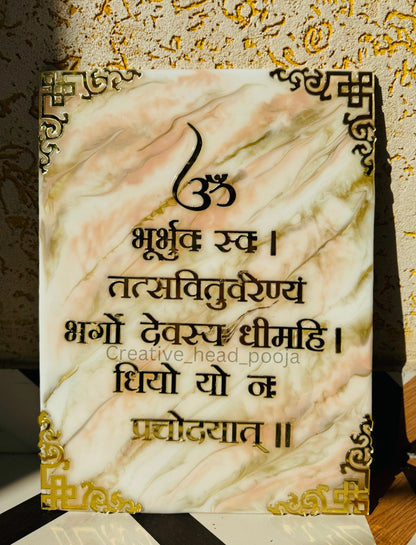 ॐ
भूर्भुवः स्वः ।
तत्सवितुर्वरेण्यं
भर्गो देवस्य धीमहि ।
Creative_head_pooja
धियो यो नः
प्रचोदयात् ॥